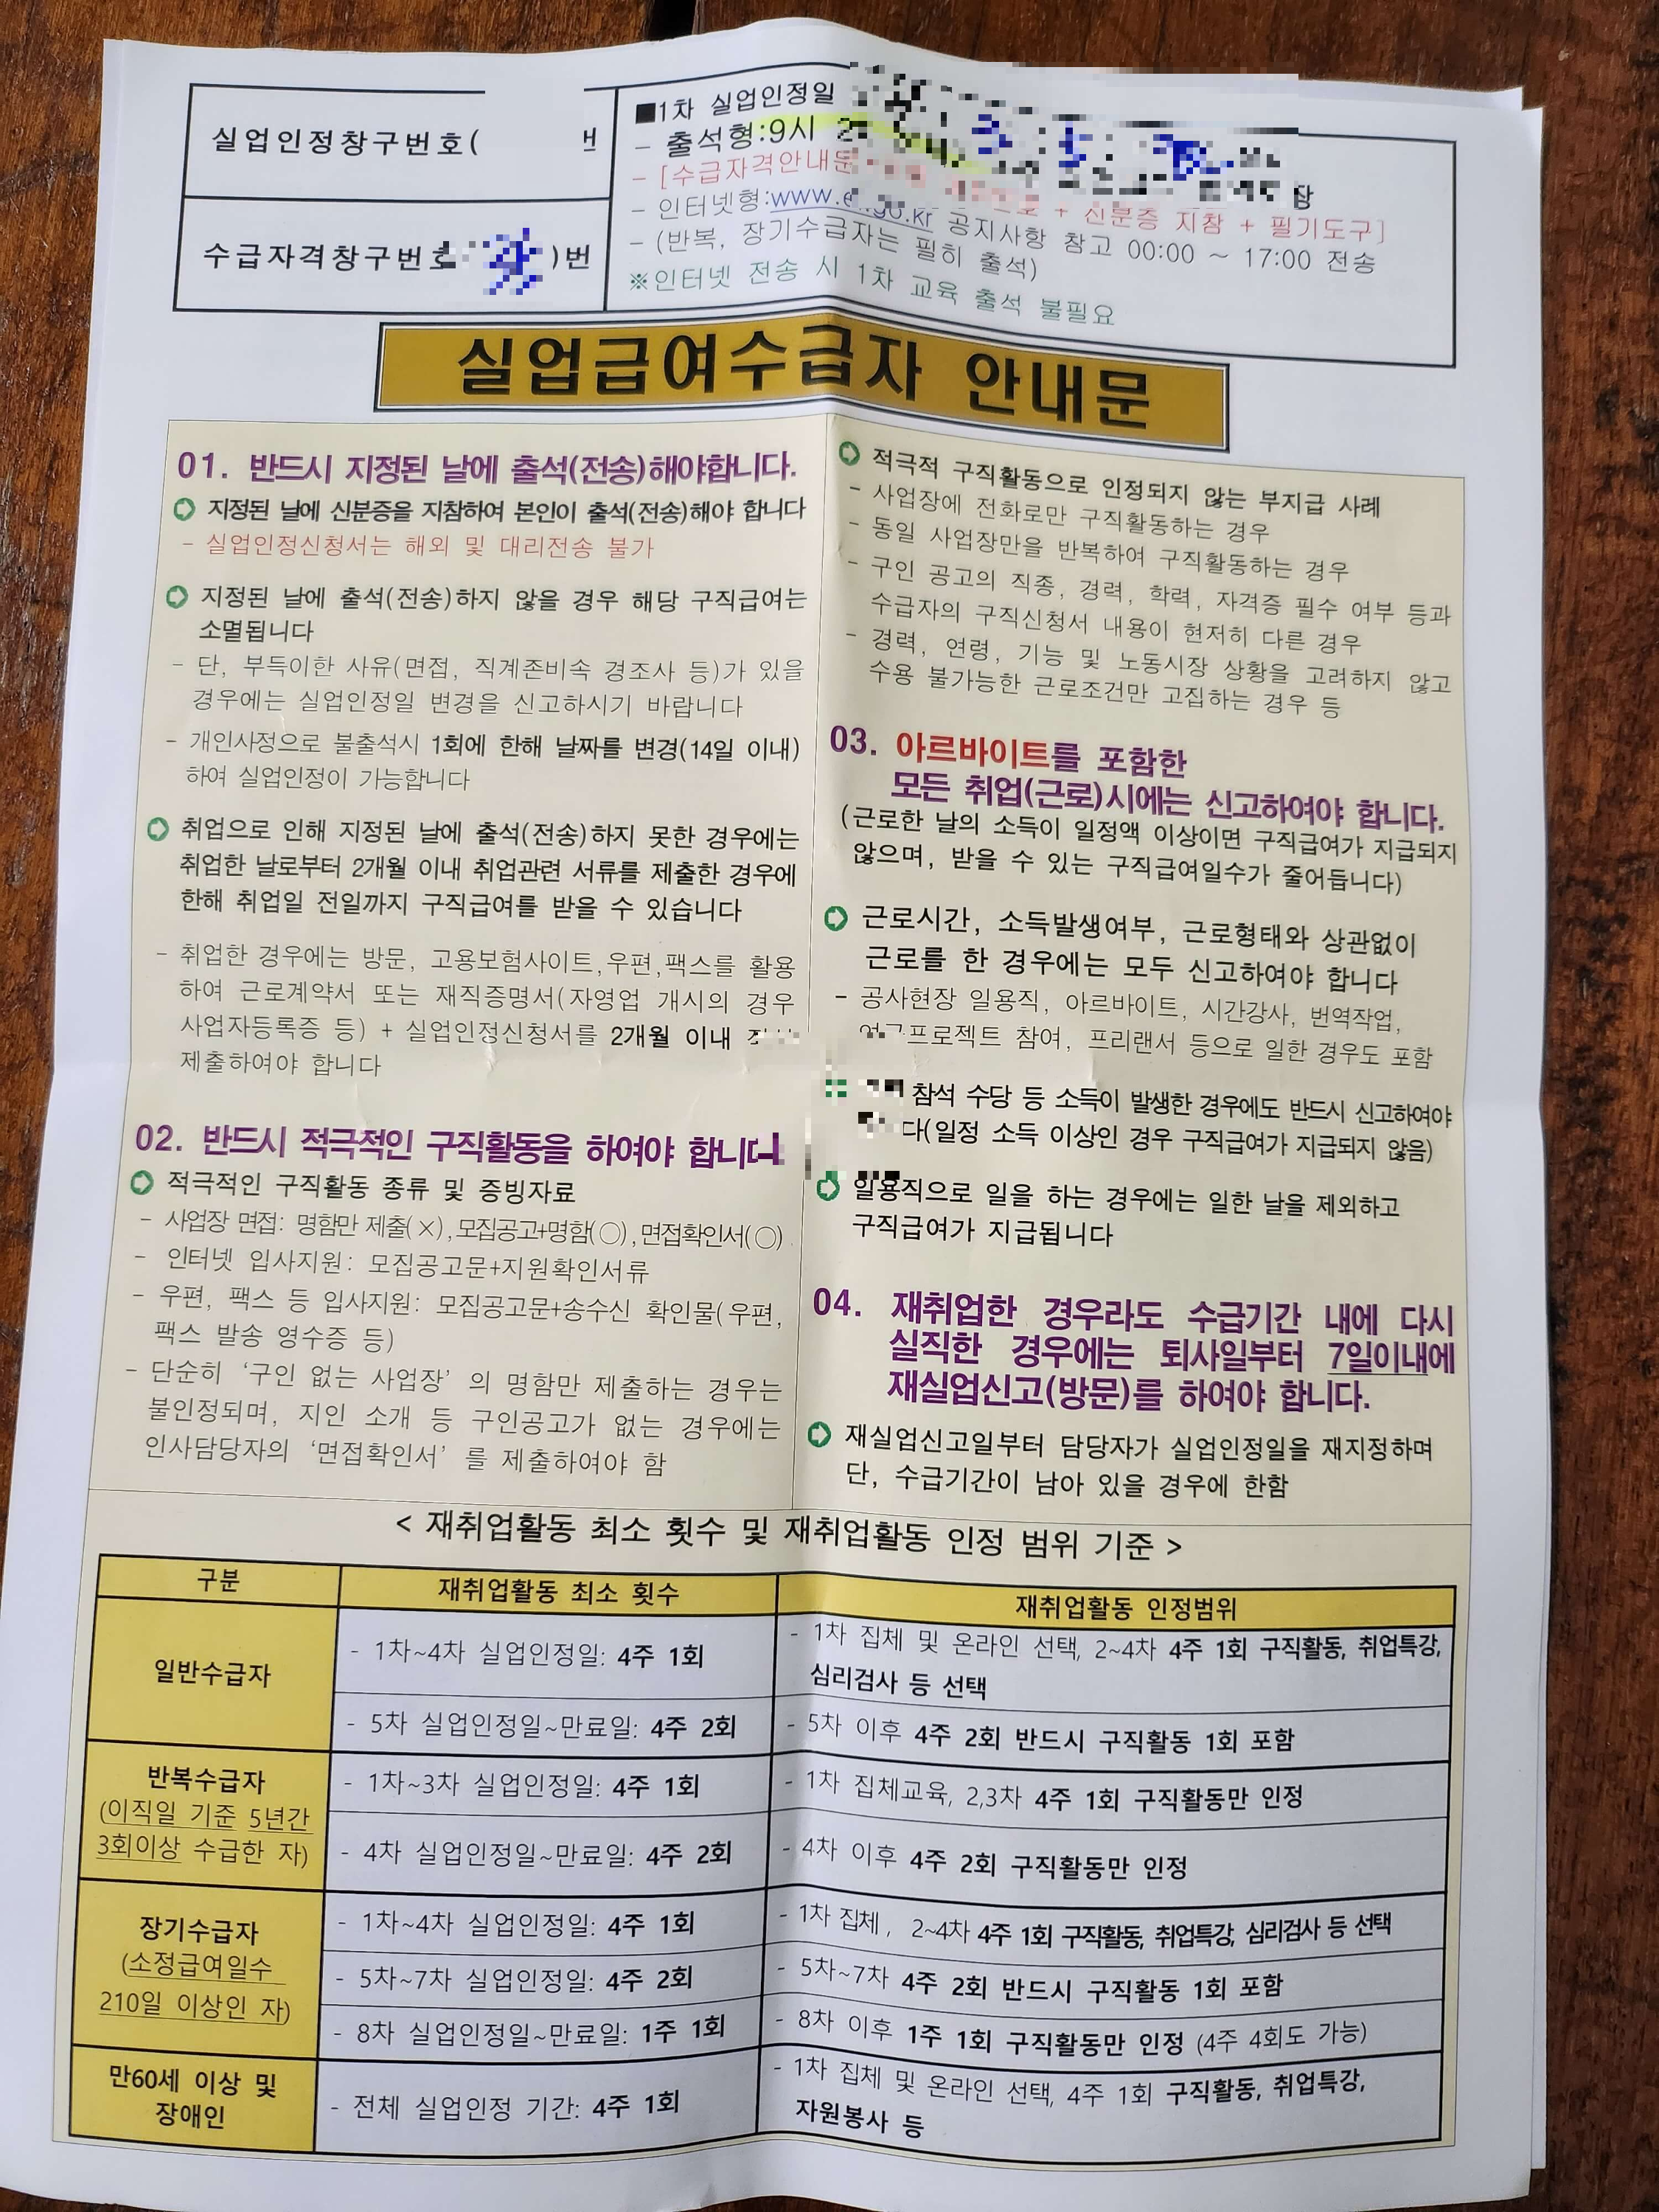 실업인정창구번호(
번
수급자격창구번호
)번
■1차 실업인정일
- 출석형:9시
- [수급자격안내문
+ 신분증 지참 + 필기도구]
- 인터넷형:www.ei.go.kr 공지사항 참고 00:00 ~ 17:00 전송
- (반복, 장기수급자는 필히 출석)
※인터넷 전송 시 1차 교육 출석 불필요
실업급여수급자 안내문
01. 반드시 지정된 날에 출석(전송)해야합니다.
지정된 날에 신분증을 지참하여 본인이 출석(전송)해야 합니다
- 실업인정신청서는 해외 및 대리전송 불가
지정된 날에 출석(전송)하지 않을 경우 해당 구직급여는
소멸됩니다
- 단, 부득이한 사유(면접, 직계존비속 경조사 등)가 있을
경우에는 실업인정일 변경을 신고하시기 바랍니다
- 개인사정으로 불출석시 1회에 한해 날짜를 변경(14일 이내)
하여 실업인정이 가능합니다
취업으로 인해 지정된 날에 출석(전송)하지 못한 경우에는
취업한 날로부터 2개월 이내 취업관련 서류를 제출한 경우에
한해 취업일 전일까지 구직급여를 받을 수 있습니다
- 취업한 경우에는 방문, 고용보험사이트,우편,팩스를 활용
하여 근로계약서 또는 재직증명서(자영업 개시의 경우
사업자등록증 등) + 실업인정신청서를 2개월 이내
제출하여야 합니다
02. 반드시 적극적인 구직활동을 하여야 합니다
적극적인 구직활동 종류 및 증빙자료
- 사업장 면접: 명함만 제출(×),모집공고+명함(○),면접확인서(○)
- 인터넷 입사지원: 모집공고문+지원확인서류
- 우편, 팩스 등 입사지원: 모집공고문+송수신 확인물(우편,
팩스 발송 영수증 등)
- 단순히 ‘구인 없는 사업장’ 의 명함만 제출하는 경우는
불인정되며, 지인 소개 등 구인공고가 없는 경우에는
인사담당자의 ‘면접확인서’ 를 제출하여야 함
적극적 구직활동으로 인정되지 않는 부지급 사례
- 사업장에 전화로만 구직활동하는 경우
- 동일 사업장만을 반복하여 구직활동하는 경우
- 구인 공고의 직종, 경력, 학력, 자격증 필수 여부 등과
수급자의 구직신청서 내용이 현저히 다른 경우
- 경력, 연령, 기능 및 노동시장 상황을 고려하지 않고
수용 불가능한 근로조건만 고집하는 경우 등
03. 아르바이트를 포함한
모든 취업(근로)시에는 신고하여야 합니다.
(근로한 날의 소득이 일정액 이상이면 구직급여가 지급되지
않으며, 받을 수 있는 구직급여일수가 줄어듭니다)
근로시간, 소득발생여부, 근로형태와 상관없이
근로를 한 경우에는 모두 신고하여야 합니다
- 공사현장 일용직, 아르바이트, 시간강사, 번역작업,
연구프로젝트 참여, 프리랜서 등으로 일한 경우도 포함
참석 수당 등 소득이 발생한 경우에도 반드시 신고하여야
다(일정 소득 이상인 경우 구직급여가 지급되지 않음)
일용직으로 일을 하는 경우에는 일한 날을 제외하고
구직급여가 지급됩니다
04. 재취업한 경우라도 수급기간 내에 다시
실직한 경우에는 퇴사일부터 7일이내에
재실업신고(방문)를 하여야 합니다.
재실업신고일부터 담당자가 실업인정일을 재지정하며
단, 수급기간이 남아 있을 경우에 한함
< 재취업활동 최소 횟수 및 재취업활동 인정 범위 기준 >
구분 재취업활동 최소 횟수 재취업활동 인정범위
일반수급자
- 1차~4차 실업인정일: 4주 1회
- 1차 집체 및 온라인 선택, 2~4차 4주 1회 구직활동, 취업특강,
심리검사 등 선택
- 5차 실업인정일~만료일: 4주 2회
- 5차 이후 4주 2회 반드시 구직활동 1회 포함
반복수급자
(이직일 기준 5년간
3회이상 수급한 자)
- 1차~3차 실업인정일: 4주 1회
- 1차 집체교육, 2,3차 4주 1회 구직활동만 인정
- 4차 실업인정일~만료일: 4주 2회
- 4차 이후 4주 2회 구직활동만 인정
장기수급자
(소정급여일수
210일 이상인 자)
- 1차~4차 실업인정일: 4주 1회
- 1차 집체, 2~4차 4주 1회 구직활동, 취업특강, 심리검사 등 선택
- 5차~7차 실업인정일: 4주 2회
- 5차~7차 4주 2회 반드시 구직활동 1회 포함
- 8차 실업인정일~만료일: 1주 1회
- 8차 이후 1주 1회 구직활동만 인정 (4주 4회도 가능)
만60세 이상 및
장애인
- 전체 실업인정 기간: 4주 1회
- 1차 집체 및 온라인 선택, 4주 1회 구직활동, 취업특강,
자원봉사 등